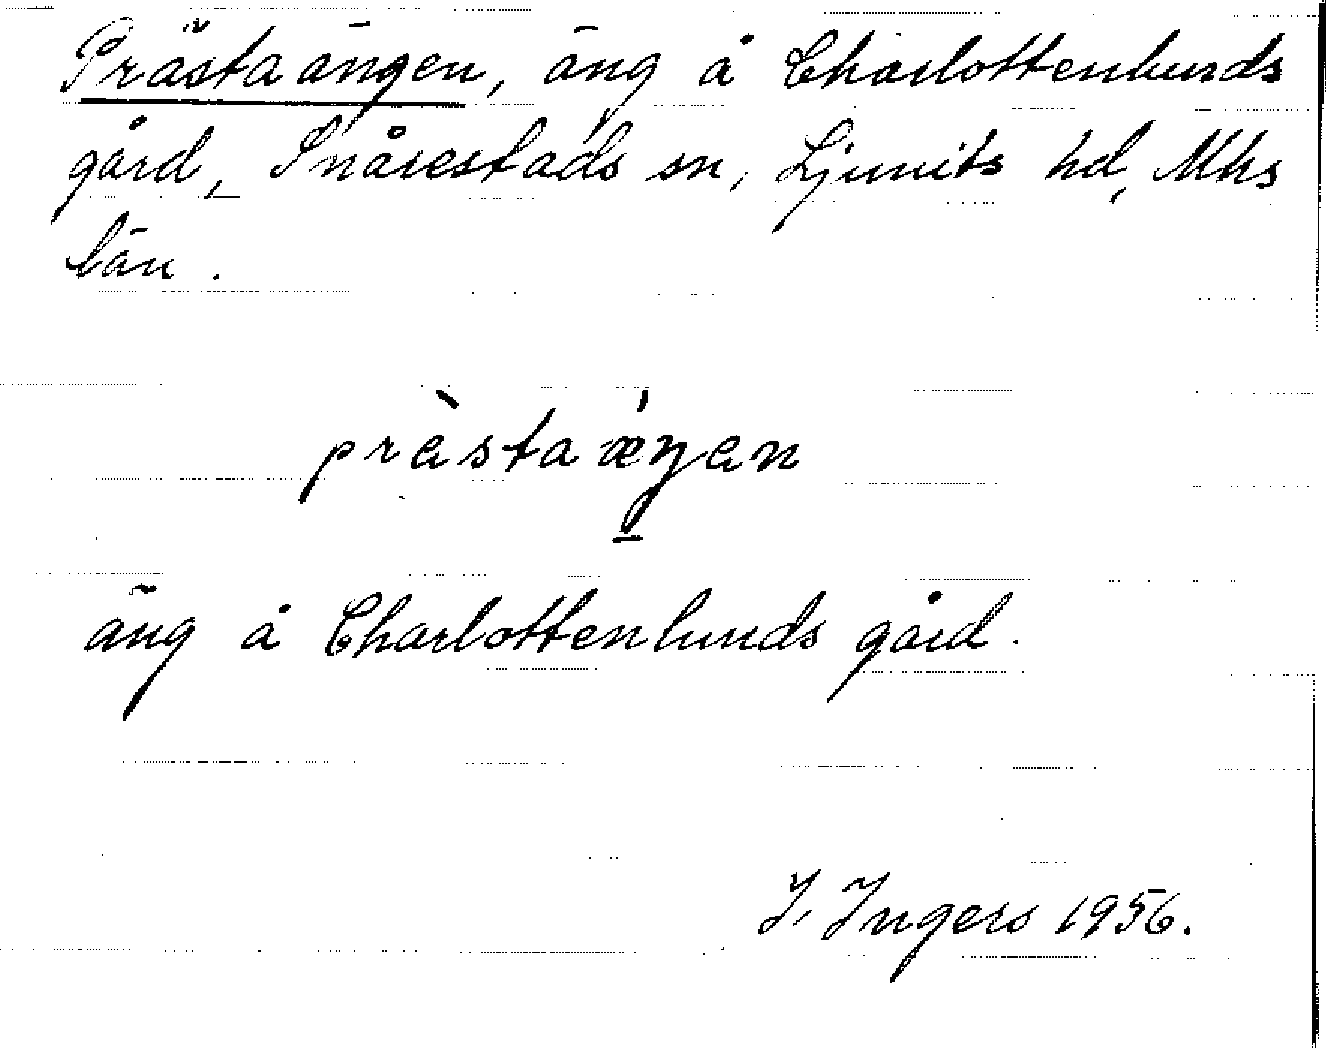 Prästaängen, äng å Charlottenlunds
gård, Snårestads sn, Ljunits hd, Mhs
län.
pràstaǽŋan
äng å Charlottenlunds gård.
I. Ingers 1956.